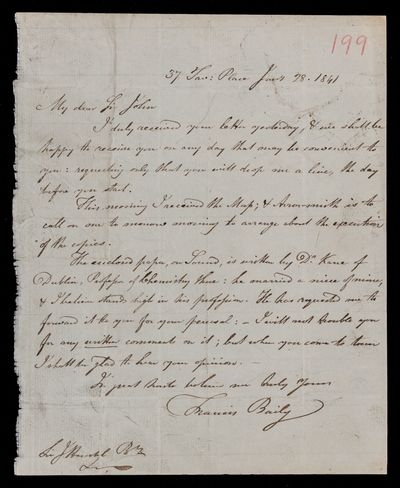 199
37 Tav: Place Jany 28. 1841
My dear Sir John
I duly received your letter yesterday, & we shall be
happy to receive you on any day that may be convenient to
you: requesting only that you will drop me a line, the day
before you start.
This morning I received the Map; & Arrowsmith is to
call on me to morrow morning to arrange about the execution
of the copies.
The enclosed paper, on Sound, is written by Dr. Kane of
Dublin, Professor of Chemistry there: he married a niece of mine,
& I believe stands high in his profession. He has requested me to
forward it to you for your perusal: – I will not trouble you
for any written comments on it; but when you come to town
I shall be glad to hear your opinion. –
In great haste believe me truly yours
Francis Baily
Sir J Herschel Bt